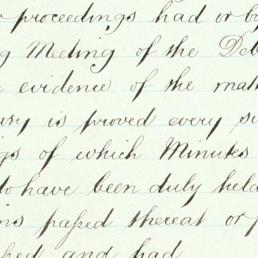 r proceedings had or b
g Meeting of the De
e evidence of the ma
ary is proved every s
gs of which Minutes
to have been duly held
ns passed thereat or p
hed and had